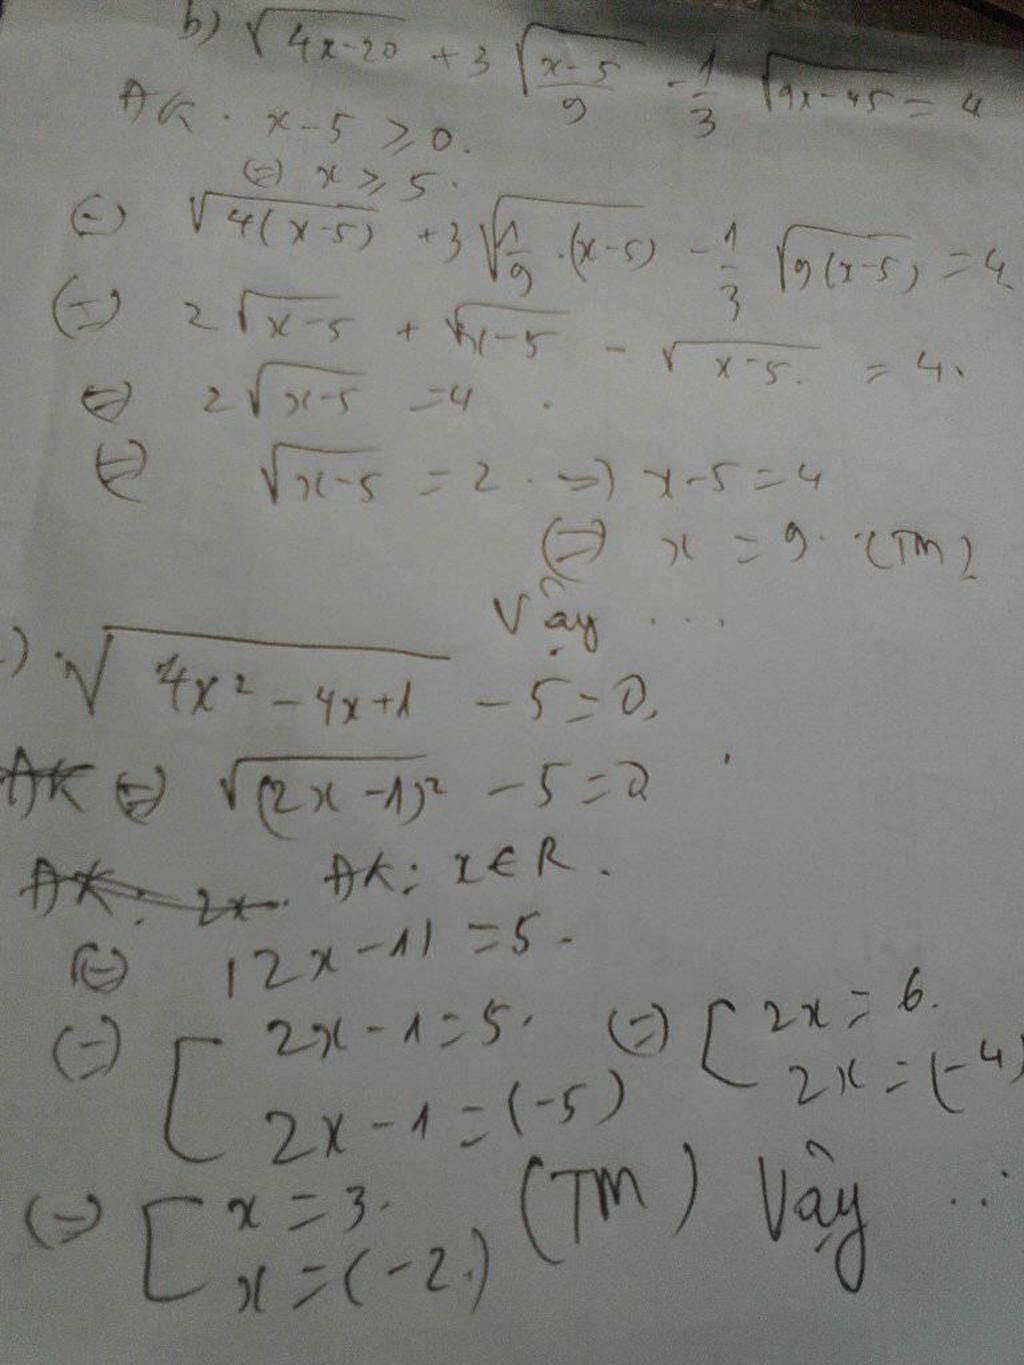 b) √(4x-20) + 3√((x-5)/9) - 1/3 √(9x-45) = 4
ĐK. x-5 ≥ 0.
(=) x ≥ 5.
(=) √(4(x-5)) + 3√(1/9 .(x-5)) - 1/3 √(9(x-5)) = 4
(=) 2√(x-5) + √(x-5) - √(x-5). = 4.
(=) 2√(x-5) = 4.
(=) √(x-5) = 2. => x-5 = 4
(=) x = 9. (TM)
Vậy ...
.) √(4x² - 4x+1) - 5 = 0.
ĐK (=) √((2x-1)²) - 5 = 0
ĐK: 2x ĐK: x ∈ R.
(=) |2x-1| = 5.
(=) [ 2x-1 = 5. (=) [ 2x = 6.
2x-1 = (-5) 2x = (-4)
(=) [ x = 3. (TM) Vậy ...
x = (-2.)